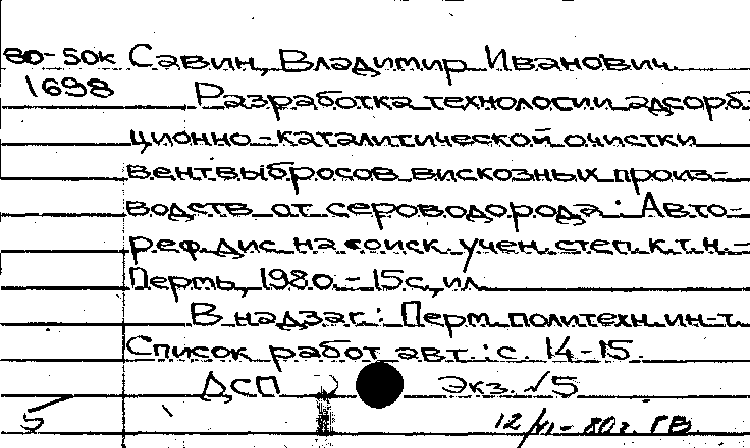 80-50к Савин, Владимир Иванович.
1698 Разработка технологии адсорб
ционно-каталитической очистки
вентвыбросов вискозных произ-
водств от сероводорода: Авто-
реф. дис. на соиск. учен. степ. к.т.н. -
Пермь, 1980. - 15 с, ил.
В надзаг.: Перм. политехн. ин-т.
Список работ авт.: с. 14-15.
ДСП Экз. √5
5 12/VI-80г. ГВ